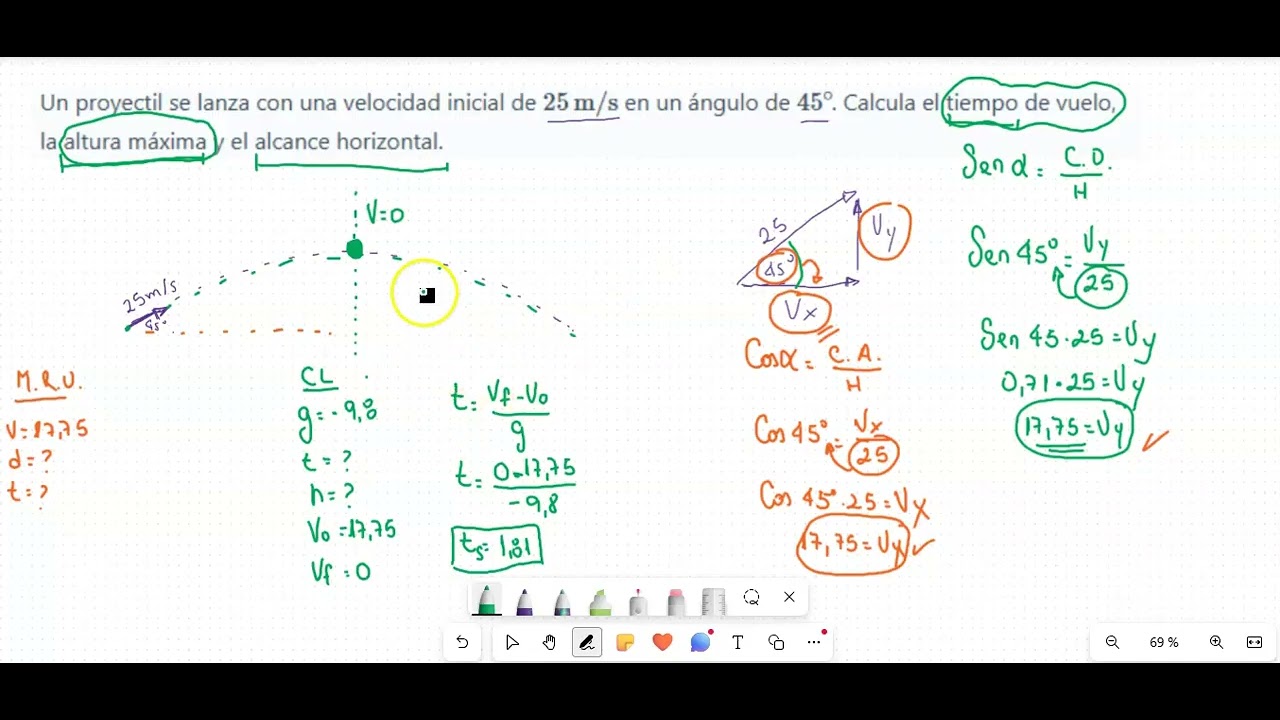 Un proyectil se lanza con una velocidad inicial de 25 m/s en un ángulo de 45°. Calcula el tiempo de vuelo,
la altura máxima y el alcance horizontal.
V=0
25m/s
45°
M.R.U.
V=17,75
d=?
t=?
CL
g=-9,8
t=?
h=?
Vo=17,75
Vf=0
t=Vf-Vo/g
t=0-17,75/-9,8
ts=1,81
25
45°
Vy
Vx
Cosα=C.A./H
Cos 45°=Vx/25
Cos 45°.25=Vx
17,75=Vx
Sen α=C.O./H
Sen 45°=Vy/25
Sen 45.25=Vy
0,71.25=Vy
17,75=Vy
T
69 %